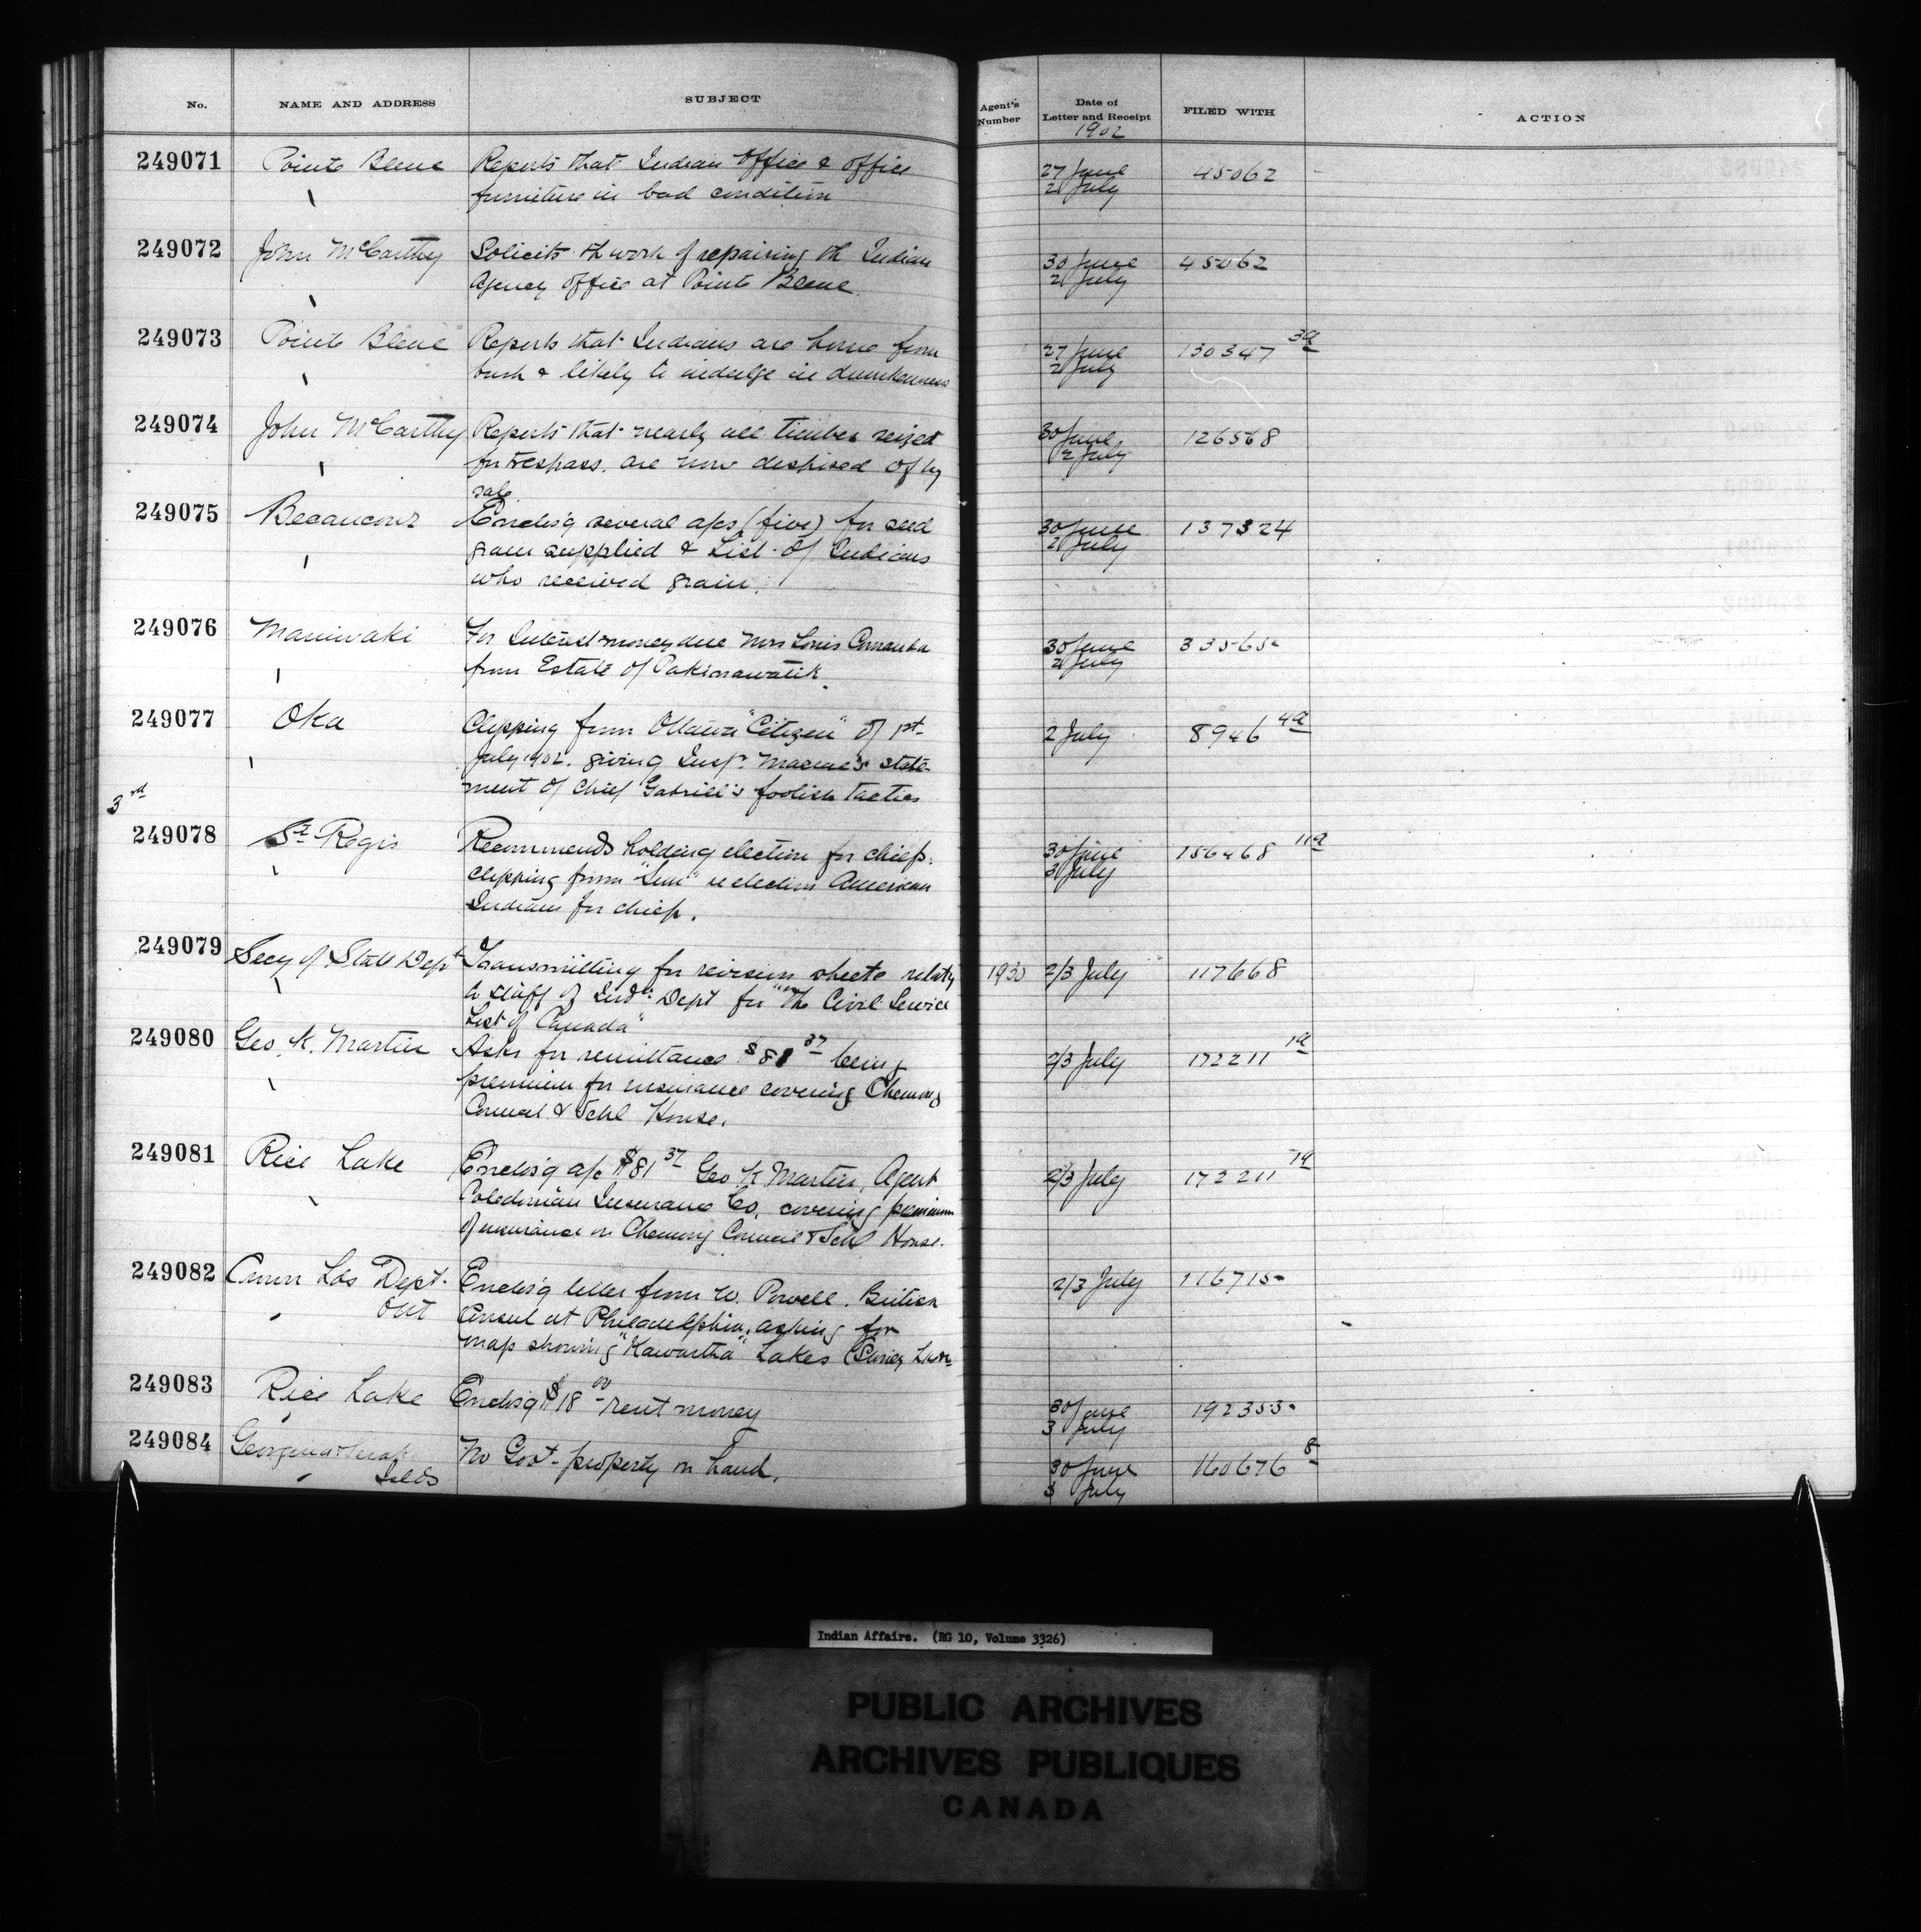 No. NAME AND ADDRESS SUBJECT Agent's Number Date of Letter and Receipt FILED WITH ACTION
1902
249071 Pointe Bleue Reports that Indian Office & office 27 June 45062
furniture in bad condition 2 July
249072 John McCarthy Solicits th work of repairing th Indian 30 June 45062
Agency Office at Pointe Bleue 2 July
249073 Pointe Bleue Reports that Indians are home from 27 June 130347 3a
bush & likely to indulge in drunkenness 2 July
249074 John McCarthy Reports that nearly all timber seized 30 June 126568
for trespass. are now desposed of by 2 July
sale
249075 Becancour Enclos'g several a/cs (five) for seed 30 June 137324
grain supplied & List of Indians 2 July
who received grain.
249076 Maniwaki For Interest money due Mrs Louis 30 June 33565
from Estate of Pakinawatik. 2 July
249077 Oka Clipping from Ottawa "Citizen" of 1st 2 July 8946 4a
July 1902. giving Insp. Macrae's state-
ment of Chief Gabriel's foolish tactics
3rd
249078 St Regis Recommends holding election for chiefs. 30 June 156468 11a
clipping from "Sun" re election American 3 July
Indians for chiefs.
249079 Secy of State Dept Transmitting for revision sheets relatg 1930 2/3 July 117668
to staff of Indn Dept for "The Civil Service
List of Canada"
249080 Geo. K. Martin Asks for remittance $81 37 being 2/3 July 172211 1a
premium for insurance covering Chemong
Council & Schl House.
249081 Rice Lake Enclos'g a/c $81 37 Geo K Martin, Agent 2/3 July 172211 1a
Caledonian Insurance Co. covering premium
of insurance on Chemong Council & Schl House.
249082 Crown Lds Dept. Enclos'g letter from W. Powell. British 2/3 July 116715
Ont Consul at Philadelphia, asking for
map showing "Kawartha" Lakes
249083 Rice Lake Enclos'g $18 00 rent money 30 June 192353
3 July
249084 Georgina & Snake No Govt property on hand. 30 June 160676 8
Islds 3 July
Indian Affairs. (RG 10, Volume 3326)
PUBLIC ARCHIVES
ARCHIVES PUBLIQUES
CANADA